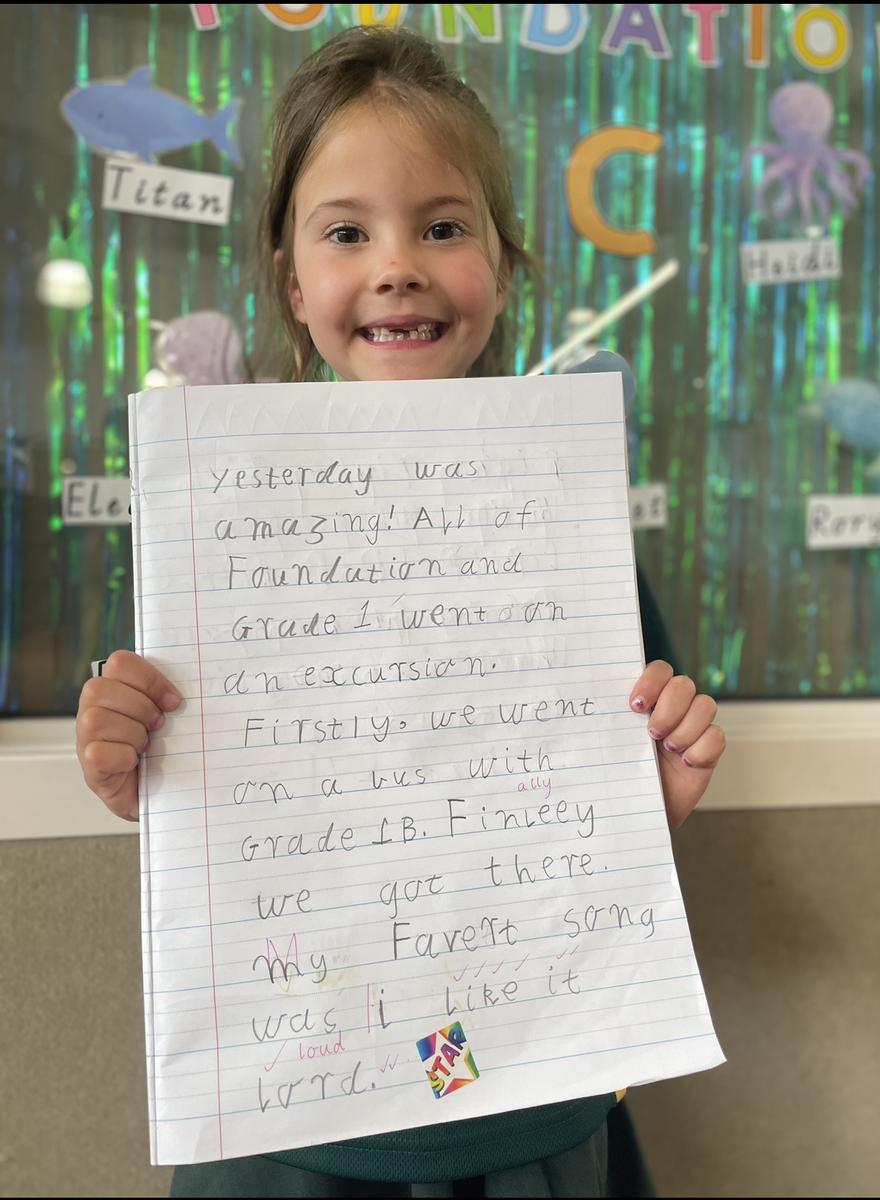 FOUNDATIO
Titan
C
Heidi
Ele
et
Rory
yesterday was
amazing! All of
Foundation and
Grade 1 went on
an excursion.
Firstly, we went
on a bus with
ally
Grade 1B. Finleey
we got there.
My Favert song
was i like it
loud
lord.
STAR